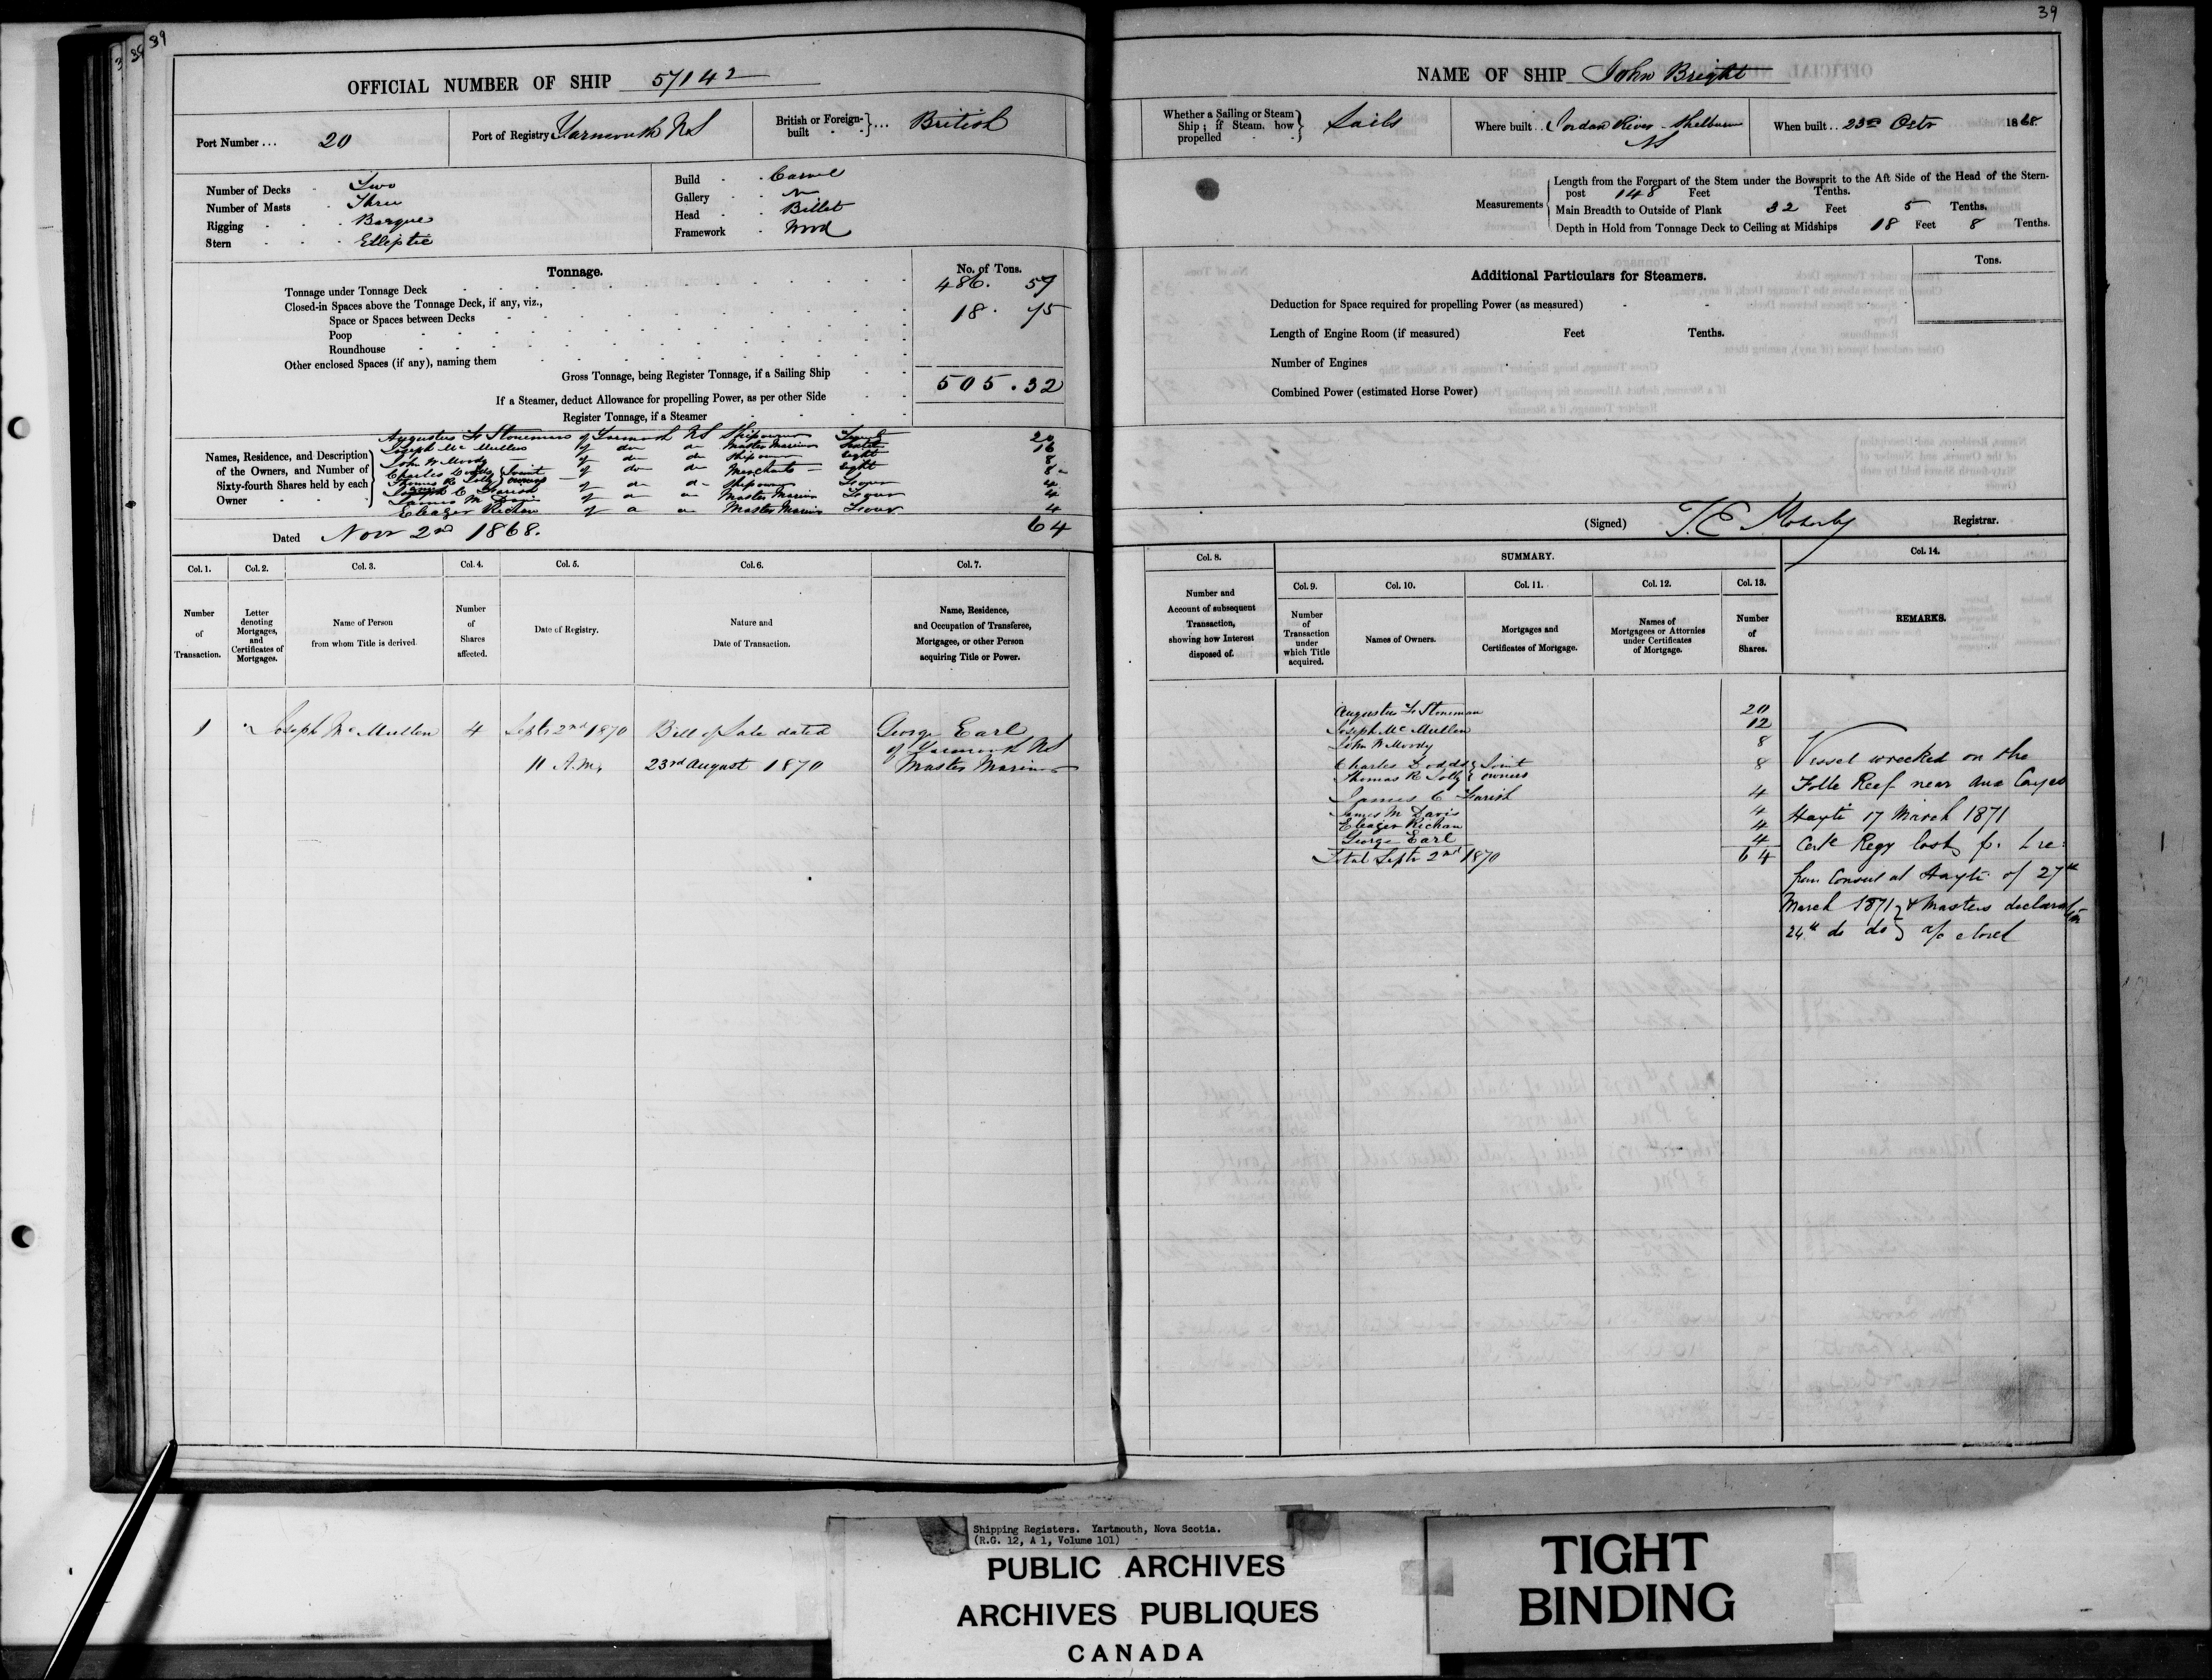 39
OFFICIAL NUMBER OF SHIP 57142
Port Number ... 20
Port of Registry Yarmouth NS
British or Foreign-built ... British
Number of Decks Two
Number of Masts Three
Rigging Barque
Stern Elliptic
Build Carvel
Gallery
Head Billet
Framework Wood
Tonnage.
No. of Tons.
Tonnage under Tonnage Deck 486. 57
Closed-in Spaces above the Tonnage Deck, if any, viz.,
Space or Spaces between Decks 18. 75
Poop
Roundhouse
Other enclosed Spaces (if any), naming them
Gross Tonnage, being Register Tonnage, if a Sailing Ship 505.32
If a Steamer, deduct Allowance for propelling Power, as per other Side
Register Tonnage, if a Steamer
Names, Residence, and Description of the Owners, and Number of Sixty-fourth Shares held by each Owner
Augustus F Stoneman of Yarmouth NS Shipowner Twenty 20
Joseph Mc Mullen of do do Master Mariner 16
John W Moody of do do Shipowner Eight 8
Charles Dodds Joint
Thomas R Jolly owners of do do Merchants Eight 8
James C Farish of do do Shipowner Four 4
James M Davis of do do Master Mariner Four 4
Eleazer Richan of do do Master Mariner Four 4
Dated Novr 2nd 1868. 64
Col. 1.
Col. 2.
Col. 3.
Col. 4.
Col. 5.
Col. 6.
Col. 7.
Number of Transaction.
Letter denoting Mortgages, and Certificates of Mortgages.
Name of Person from whom Title is derived.
Number of Shares affected.
Date of Registry.
Nature and Date of Transaction.
Name, Residence, and Occupation of Transferee, Mortgagee, or other Person acquiring Title or Power.
1 Joseph Mc Mullen 4 Septr 2nd 1870 Bill of Sale dated George Earl
of Yarmouth NS
11 A.M. 23rd August 1870 Master Mariner
39
NAME OF SHIP John Bright
Whether a Sailing or Steam Ship; if Steam, how propelled Sails
Where built .. Jordan River Shelburne
NS
When built .. 23rd Octr 1868
Measurements
Length from the Forepart of the Stem under the Bowsprit to the Aft Side of the Head of the Stern-
post 148 Feet Tenths.
Main Breadth to Outside of Plank 32 Feet 5 Tenths,
Depth in Hold from Tonnage Deck to Ceiling at Midships 18 Feet 8 Tenths.
Additional Particulars for Steamers.
Tons.
Deduction for Space required for propelling Power (as measured)
Length of Engine Room (if measured) Feet Tenths.
Number of Engines
Combined Power (estimated Horse Power)
(Signed) T. E. Moberly Registrar.
Col. 8.
SUMMARY.
Col. 14.
Col. 9.
Col. 10.
Col. 11.
Col. 12.
Col. 13.
Number and Account of subsequent Transaction, showing how Interest disposed of.
Number of Transaction under which Title acquired.
Names of Owners.
Mortgages and Certificates of Mortgage.
Names of Mortgagees or Attornies under Certificates of Mortgage.
Number of Shares.
REMARKS.
Augustus F Stoneman 20
Joseph Mc Mullen 12
John W Moody 8
Charles Dodds Joint 8
Thomas R Jolly owners
James C Farish 4
James M Davis 4
Eleazer Richan 4
George Earl 4
Total Septr 2nd 1870 64
Vessel wrecked on the
Folle Reef near Aux Cayes
Hayti 17 March 1871
Certe Regy lost
from Consul at Hayti of 27th
March 1871 & Masters declaration
24th do do a/c closed
Shipping Registers. Yartmouth, Nova Scotia.
(R.G. 12, A 1, Volume 101)
PUBLIC ARCHIVES
ARCHIVES PUBLIQUES
CANADA
TIGHT
BINDING